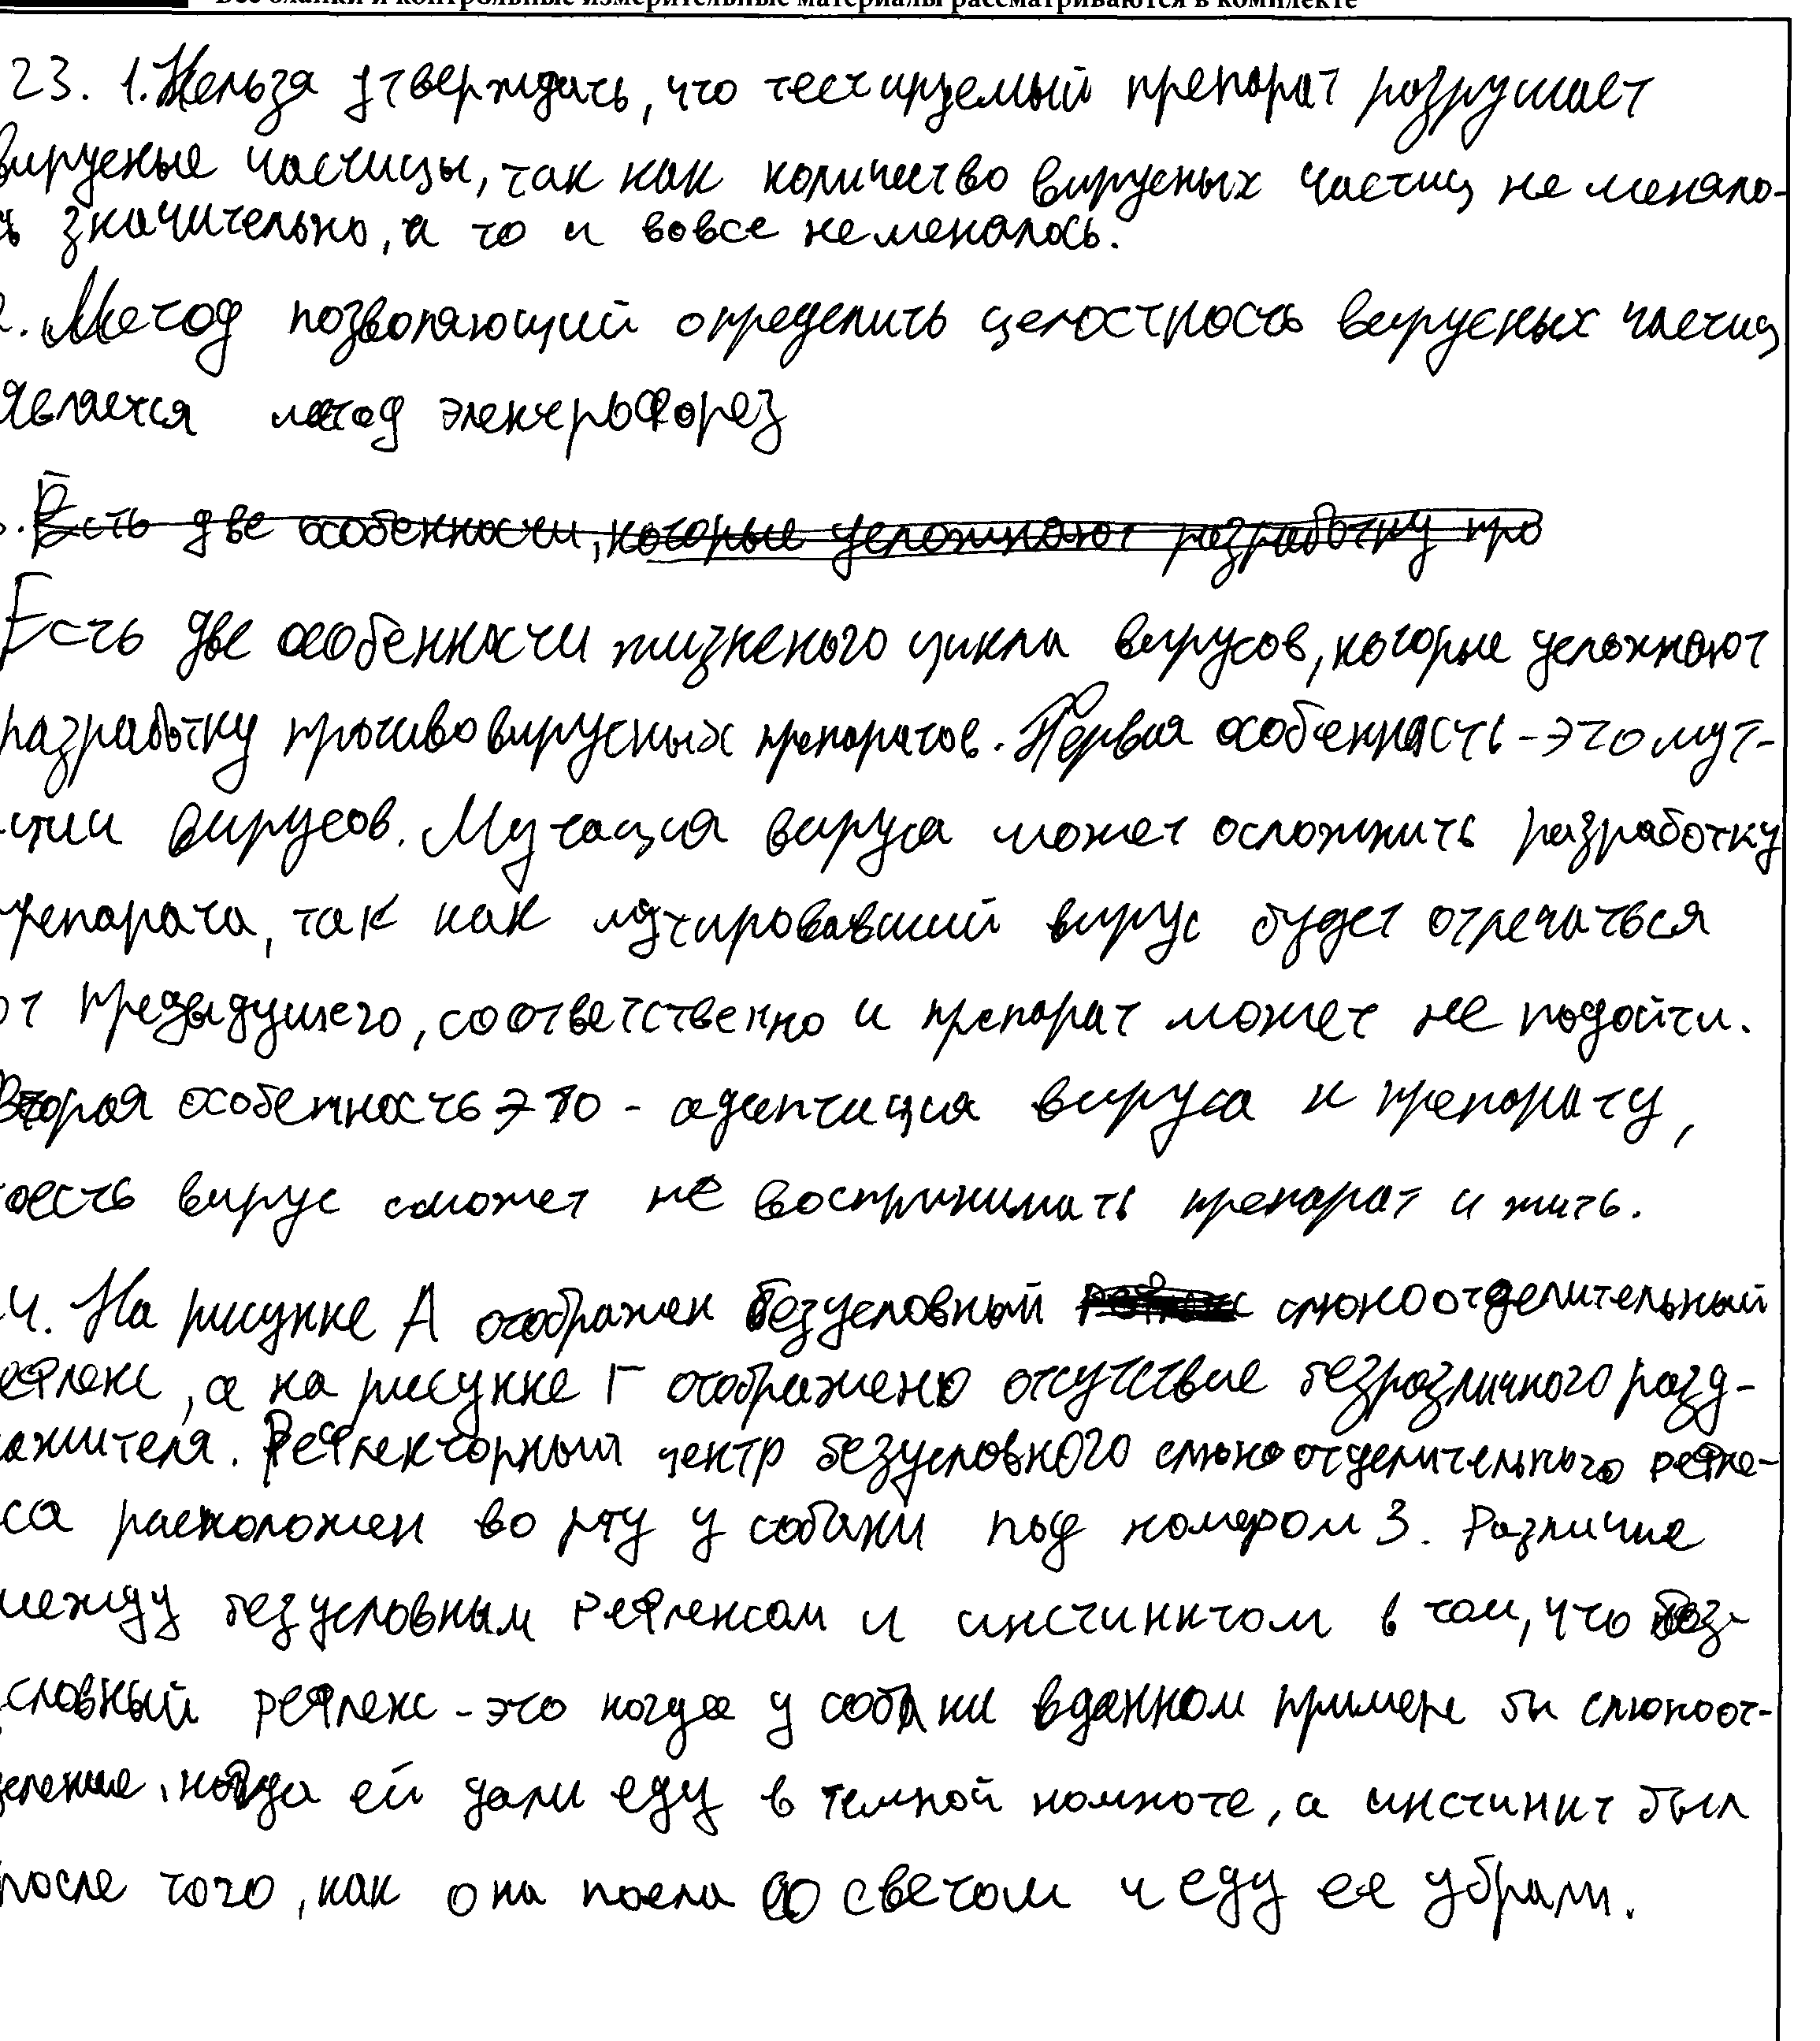 Все бланки и контрольные измерительные материалы рассматриваются в комплекте
23. 1. Нельзя утверждать, что тестируемый препарат разрушает
вирусные частицы, так как количество вирусных частиц не меняло-
сь значительно, а то и вовсе не менялось.
2. Метод позволяющий определить целостность вирусных частиц
является метод электрофорез
3. Есть две особенности, которые усложняют разработку про
Есть две особенности жизненого цикла вирусов, которые усложняют
разработку противовирусных препаратов. Первая особенность - это мут-
ции вирусов. Мутация вируса может осложнить разработку
препарата, так как мутировавший вирус будет отречаться
от предыдущего, соответственно и препарат может не подойти.
Вторая особенность это - адаптация вируса к препарату,
тоесть вирус сможет не воспринимать препарат и жить.
4. На рисунке А отображен безусловный слюноотделительный
рефлекс, а на рисунке Г отображено отсутствие безразличного разд-
ажителя. Рефлекторный центр безусловного слюноотделительного рефле-
са расположен во рту у собаки под номером 3. Различие
между безусловным рефлексом и инстинктом в том, что без-
условный рефлекс - это когда у собаки в данном примере бы слюноот-
деление, когда ей дали еду в темной комноте, а инстинкт был
после того, как она поела со светом и еду ее убрали.